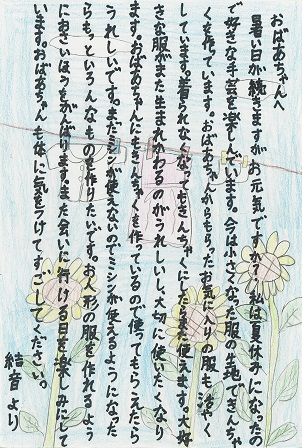 おばあちゃんへ
暑い日が続きますがお元気ですか？私は夏休みになったの
で好きな手芸を楽しんでいます。今は小さくなった服の生地できんち
ゃくを作っています。おばあちゃんからもらったお気に入りの服もきんちゃく
にしています。着られなくなってもきんちゃくにしたらまた使えます。大好
きな服がまた生まれかわるのがうれしいし、大切に使いたくなり
ます。おばあちゃんにもきんちゃくを作っているので使ってもらえたら
うれしいです。まだミシンが使えないのでミシンが使えるようになった
らもっといろんなものを作りたいです。お人形の服を作れるよう
におさいほうをがんばります。また会いに行ける日を楽しみにして
います。おばあちゃんも体に気をつけてすごしてください。
結音より